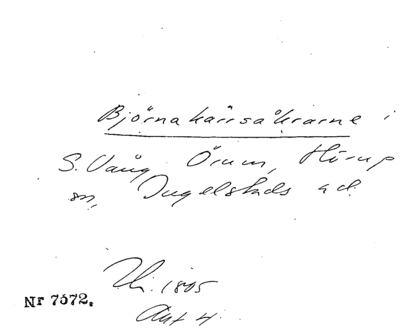 Björnakärrsåkrarne i
S. Vång Örum, Hörup
sn, Ingelstads hd.
Nr 7572.
1805
Akt 4.